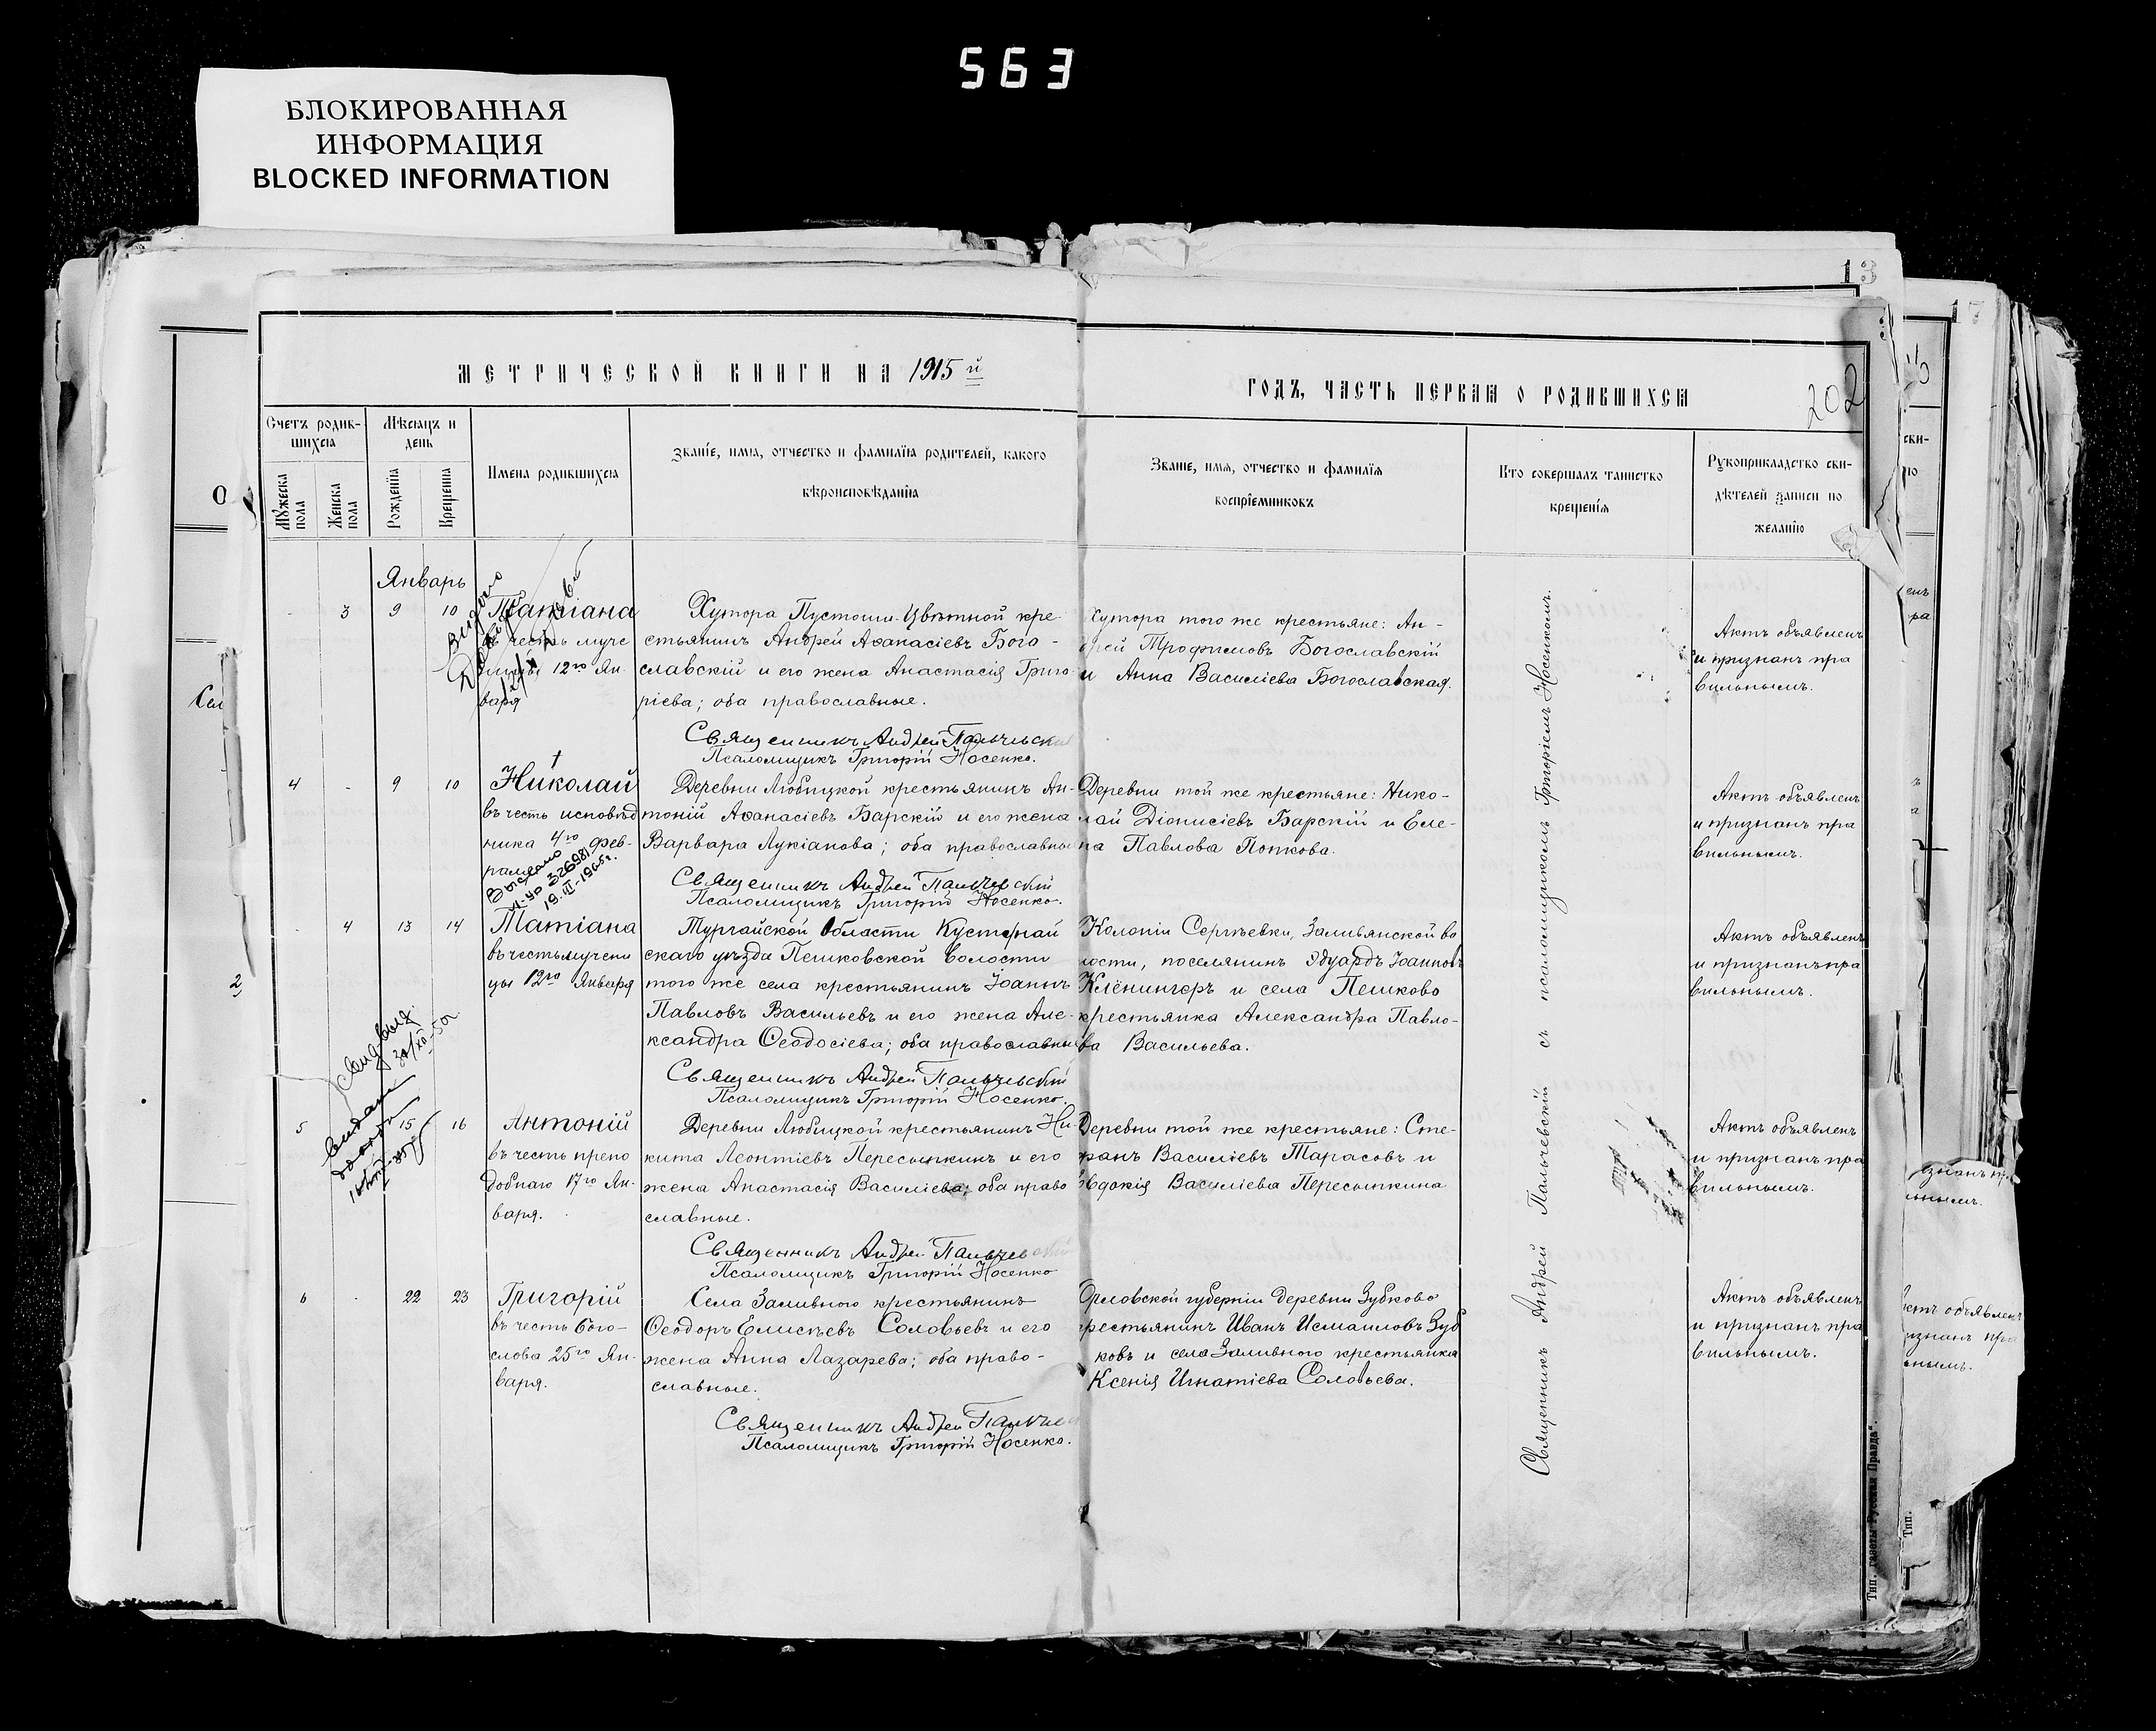 563
БЛОКИРОВАННАЯ
ИНФОРМАЦИЯ
BLOCKED INFORMATION
13
17
МЕТРИЧЕСКОЙ КНИГИ НА 1915й
ГОДЪ, ЧАСТЬ ПЕРВАЯ О РОДИВШИХСЯ
202
Счетъ родив-
шихся
Мѣсяцъ и
день
Мужеска
пола
Женска
пола
Рожденія
Крещенія
Имена родившихся
Званіе, имя, отчество и фамилія родителей, какого
вѣроисповѣданія
Званіе, имя, отчество и фамилія
воспріемниковъ
Кто совершалъ таинство
крещенія
Рукоприкладство сви-
дѣтелей записи по
желанію
Январь
- 3 9 10
Татіана
въ честь муче
ницы 12го Ян-
варя
Хутора Пустоши-Цвѣтной кре-
стьянинъ Андрей Аѳанасіевъ Бого-
славскій и его жена Анастасія Григо-
ріева; оба православные.
Священникъ Андрей Пальчевскій
Псаломщикъ Григорій Носенко.
Хутора того же крестьяне: Ан-
дрей Трофимовъ Богославскій
и Анна Василіева Богославская.
Актъ объявленъ
и признанъ пра
вильнымъ.
4 - 9 10
Николай
въ честь исповѣд
ника 4го Фев-
раля
Выслано
19.III-
Деревни Любицкой крестьянинъ Ан-
тоній Аѳанасіевъ Барскій и его жена
Варвара Лукіанова; оба православны
Священникъ Андрей Пальчевскій
Псаломщикъ Григорій Носенко.
Деревни той же крестьяне: Нико-
лай Діонисіевъ Барскій и Еле-
на Павлова Попкова.
Актъ объявленъ
и признанъ пра
вильнымъ.
- 4 13 14
Татіана
въ честь мучени
цы 12го Января
Тургайской области Кустанай
скаго уѣзда Пешковской волости
того же села крестьянинъ Іоаннъ
Павловъ Васильевъ и его жена Але-
ксандра Ѳеодосіева; оба православны
Священникъ Андрей Пальчевскій
Псаломщикъ Григорій Носенко.
Колоніи Сергѣевки, во
лости, поселянинъ Эдуардъ Іоанновъ
Клёнингеръ и села Пешково
крестьянка Александра Павло-
ва Васильева.
Актъ объявленъ
и признанъ пра
вильнымъ.
5 15 16
Антоній
въ честь препо
добнаго 17го Ян-
варя.
Деревни Любицкой крестьянинъ Ни-
кита Леонтіевъ Пересыпкинъ и его
жена Анастасія Василіева; оба право
славные.
Священникъ Андрей Пальчевскій
Псаломщикъ Григорій Носенко
Деревни той же крестьяне: Сте-
фанъ Василіевъ Тарасовъ и
Евдокія Василіева Пересыпкина
Актъ объявленъ
и признанъ пра
вильнымъ.
6 - 22 23
Григорій
въ честь Бого-
слова 25го Ян-
варя.
Села Заливного крестьянинъ
Ѳеодоръ Елисѣевъ Соловьевъ и его
жена Анна Лазарева; оба право-
славные.
Священникъ Андрей Пальчев
Псаломщикъ Григорій Носенко.
Орловской губерніи деревни Зубково
крестьянинъ Иванъ Исмаиловъ Зуб
ковъ и села Заливного крестьянка
Ксенія Игнатіева Соловьева.
Актъ объявленъ
и признанъ пра
вильнымъ.
Священникъ Андрей Пальчевскій съ псаломщикомъ Григоріемъ Носенкомъ.
Тип. газеты Русская Правда".
Тип.